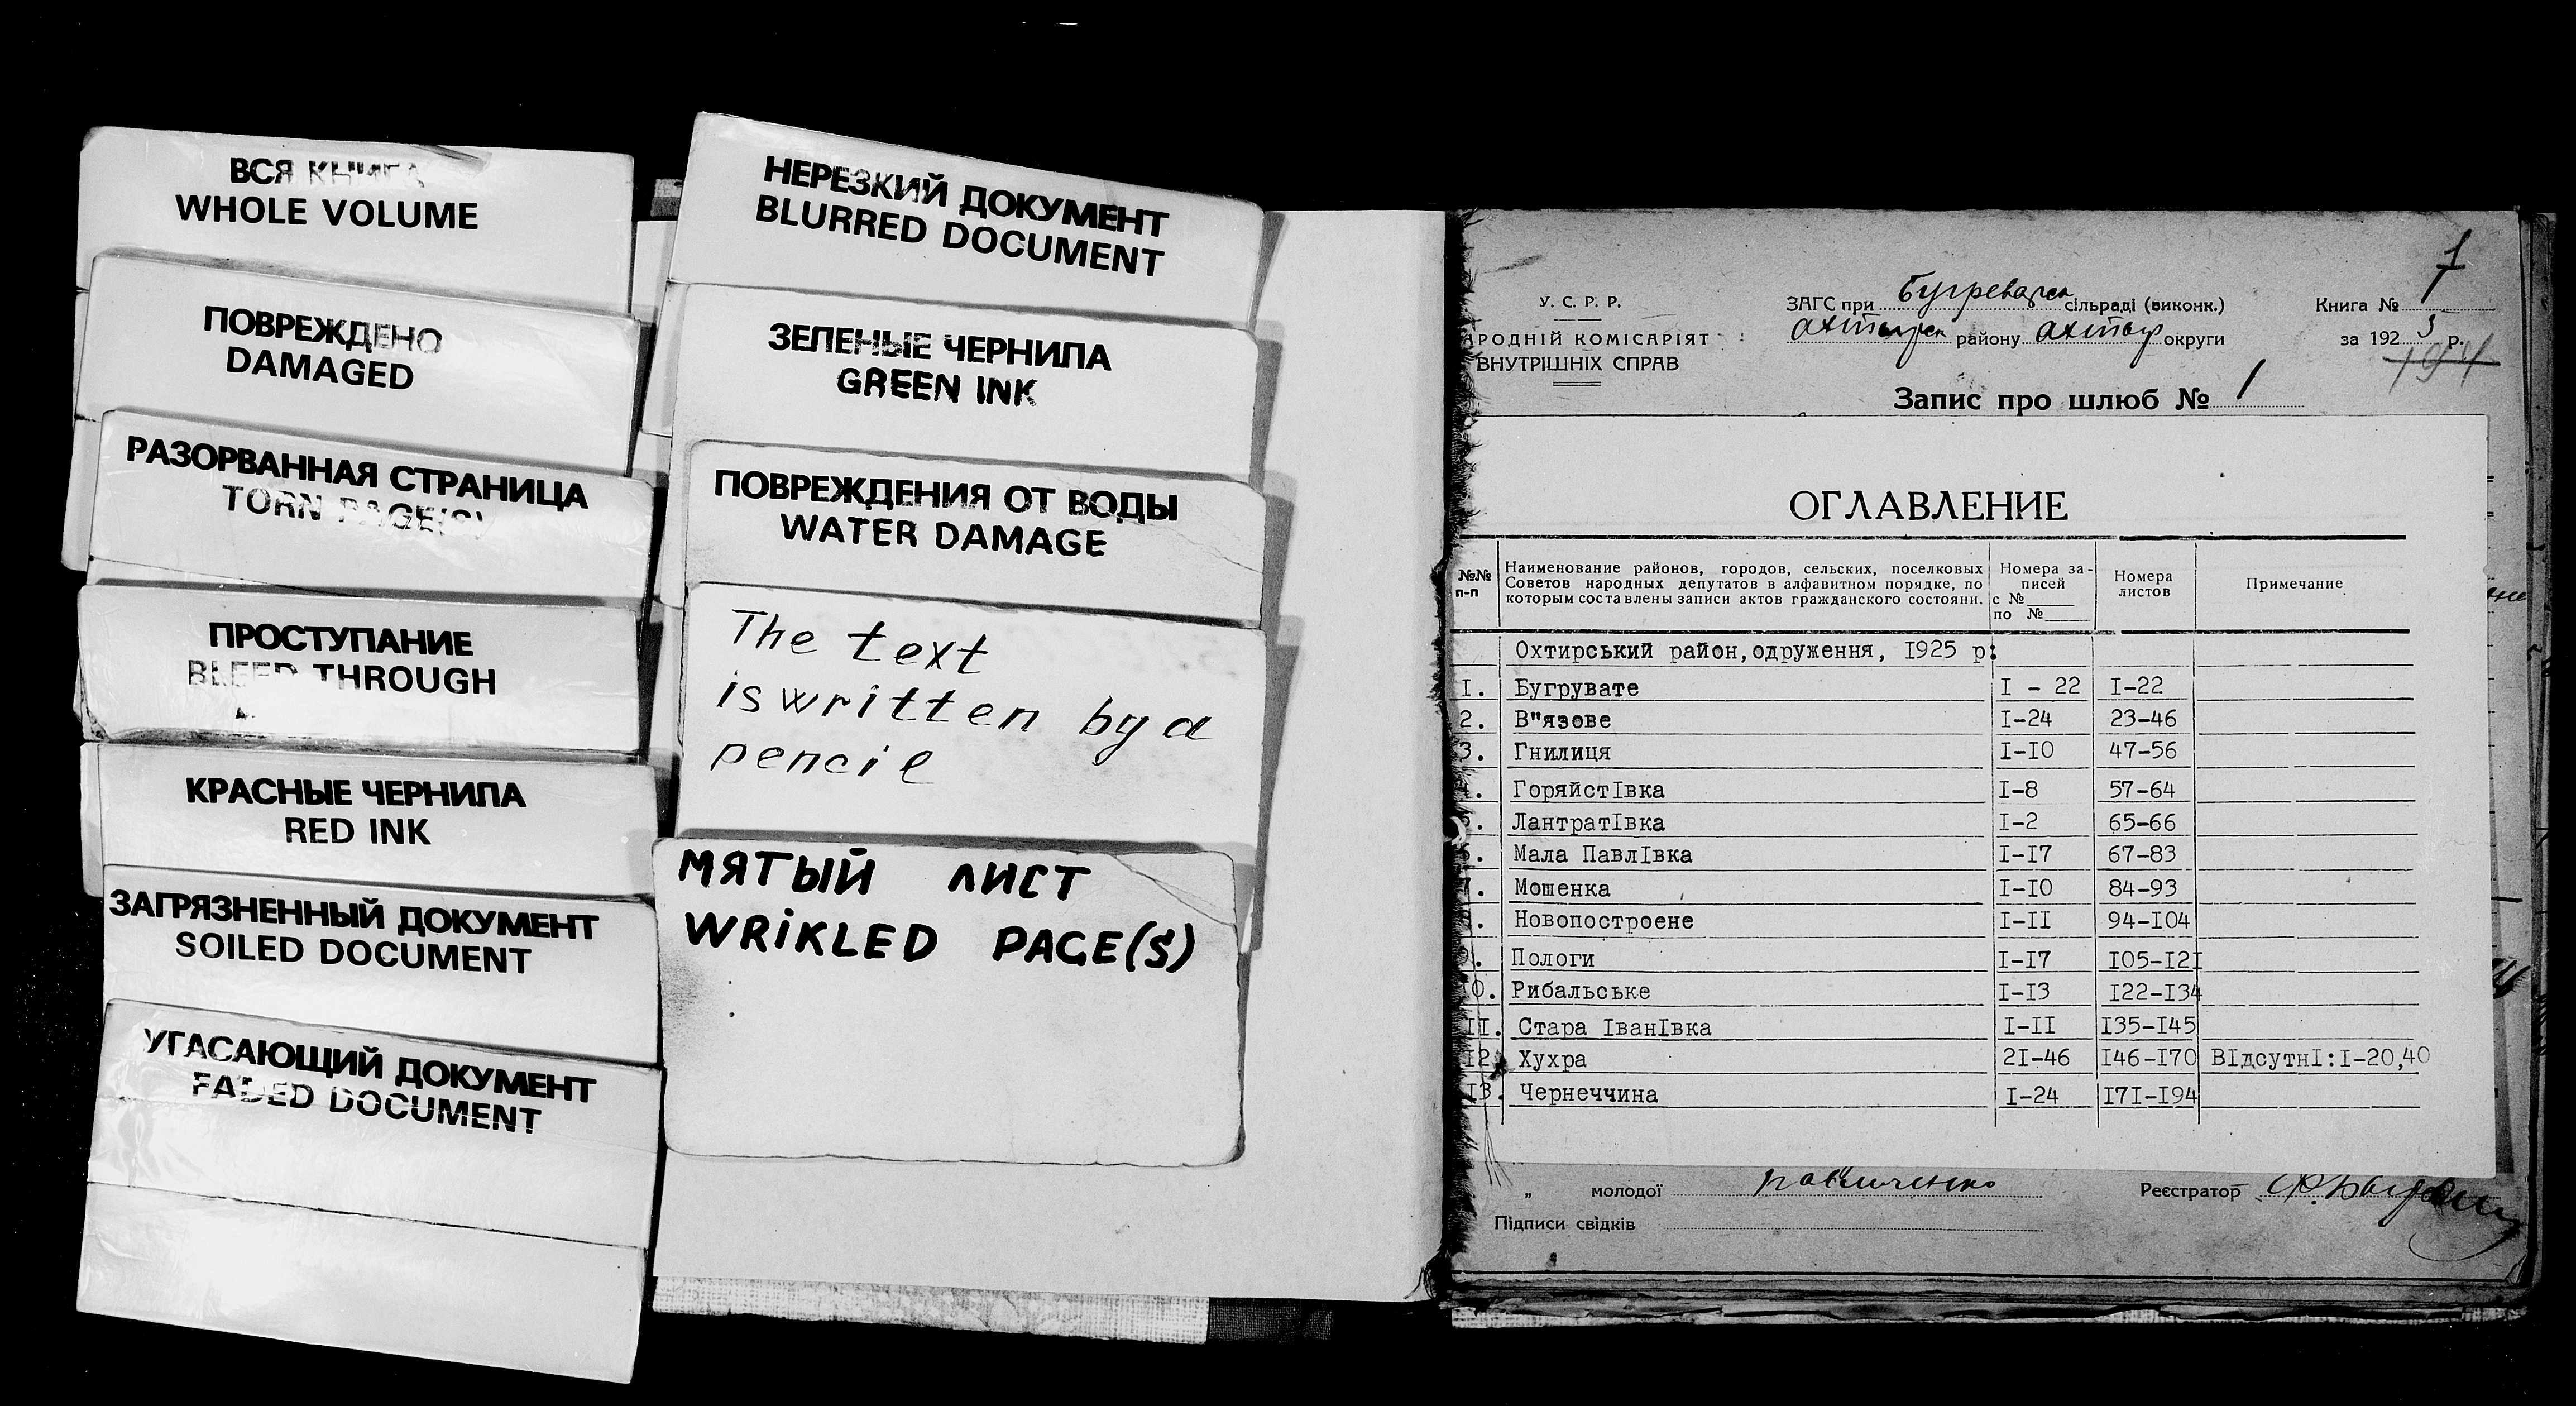 ВСЯ КНИГА
WHOLE VOLUME
ПОВРЕЖДЕНО
DAMAGED
РАЗОРВАННАЯ СТРАНИЦА
TORN PAGE(S)
ПРОСТУПАНИЕ
BLEED THROUGH
КРАСНЫЕ ЧЕРНИЛА
RED INK
ЗАГРЯЗНЕННЫЙ ДОКУМЕНТ
SOILED DOCUMENT
УГАСАЮЩИЙ ДОКУМЕНТ
FADED DOCUMENT
НЕРЕЗКИЙ ДОКУМЕНТ
BLURRED DOCUMENT
ЗЕЛЕНЫЕ ЧЕРНИЛА
GREEN INK
ПОВРЕЖДЕНИЯ ОТ ВОДЫ
WATER DAMAGE
The text
is written by a
pencil
МЯТЫЙ ЛИСТ
WRiKLED PAGE(S)
1
У. С. Р. Р.
АРОДНІЙ КОМІСАРІЯТ
ВНУТРІШНІХ СПРАВ
ЗАГС при сільраді (виконк.)
району округи
Книга № 1
за 1925 р.
194
Запис про шлюб № 1
ОГЛАВЛЕНИЕ
№№ п-п Наименование районов, городов, сельских, поселковых Советов народных депутатов в алфавитном порядке, по которым составлены записи актов гражданского состояни. Номера записей с № по № Номера листов Примечание
Охтирський район,одруження, I925 р:
I. Бугрувате I - 22 I-22
2. В"язове I-24 23-46
3. Гнилиця I-I0 47-56
4. ГоряйстIвка I-8 57-64
5. ЛантратIвка I-2 65-66
6. Мала ПавлIвка I-I7 67-83
7. Мошенка I-I0 84-93
8. Новопостроене I-II 94-I04
9. Пологи I-I7 I05-I2I
0. Рибальське I-I3 I22-I34
II. Стара ІванIвка I-II I35-I45
I2. Хухра 2I-46 I46-I70 ВIдсутнI:I-20,40
I3. Чернеччина I-24 I7I-I94
„ молодої Реєстратор
Підписи свідків